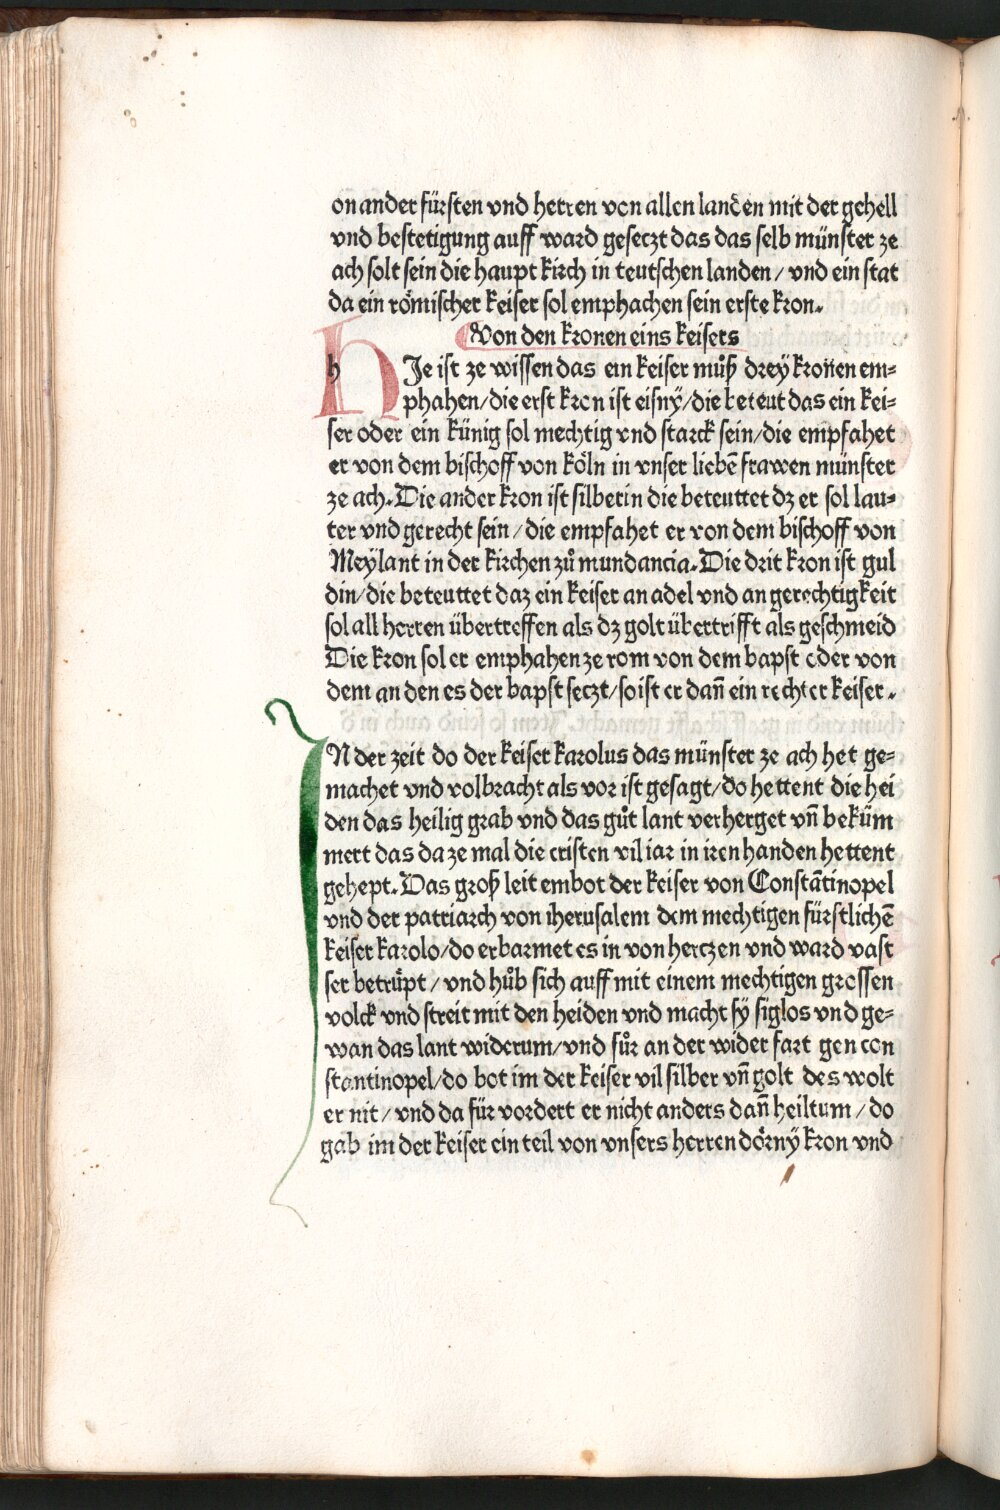 on ander fürsten vnd herren von allen landen mit der gehell
vnd bestetigung auff ward geseczt das das selb münster ze
ach solt sein die haupt kirch in teutschen landen / vnd ein stat
da ein römischer keiser sol emphachen sein erste kron.
Von den kronen eins keisers
h Je ist ze wissen das ein keiser můß drey kronen em⸗
phahen/die erst kron ist eisnÿ/die beteut das ein kei⸗
ser oder ein künig sol mechtig vnd starck sein/die empfahet
er von dem bischoff von köln in vnser liebē frawen münster
ze ach. Die ander kron ist silberin die beteuttet dz er sol lau⸗
ter vnd gerecht sein / die empfahet er von dem bischoff von
Meÿlant in der kirchen zů mundancia. Die drit kron ist gul
din/die beteuttet daz ein keiser an adel vnd an gerechtigkeit
sol all herren übertreffen als dz golt übertrifft als geschmeid
Die kron sol er emphahen ze rom von dem bapst oder von
dem an den es der bapst seczt/so ist er dañ ein rechter keiser.
JN der zeit do der keiser karolus das münster ze ach het ge⸗
machet vnd volbracht als vor ist gesagt/do hettent die hei
den das heilig grab vnd das gůt lant verherget vñ beküm
mert das da ze mal die cristen vil iar in iren handen hettent
gehept. Das groß leit embot der keiser von Constātinopel
vnd der patriarch von iherusalem dem mechtigen fürstlichē
keiser karolo/do erbarmet es in von herczen vnd ward vast
ser betrüpt / vnd hůb sich auff mit einem mechtigen grossen
volck vnd streit mit den heiden vnd macht sÿ siglos vnd ge⸗
wan das lant widerum/vnd fůr an der wider fart gen con
stantinopel/do bot im der keiser vil silber vñ golt des wolt
er nit / vnd da für vordert er nicht anders dañ heiltum / do
gab im der keiser ein teil von vnsers herren dörnÿ kron vnd